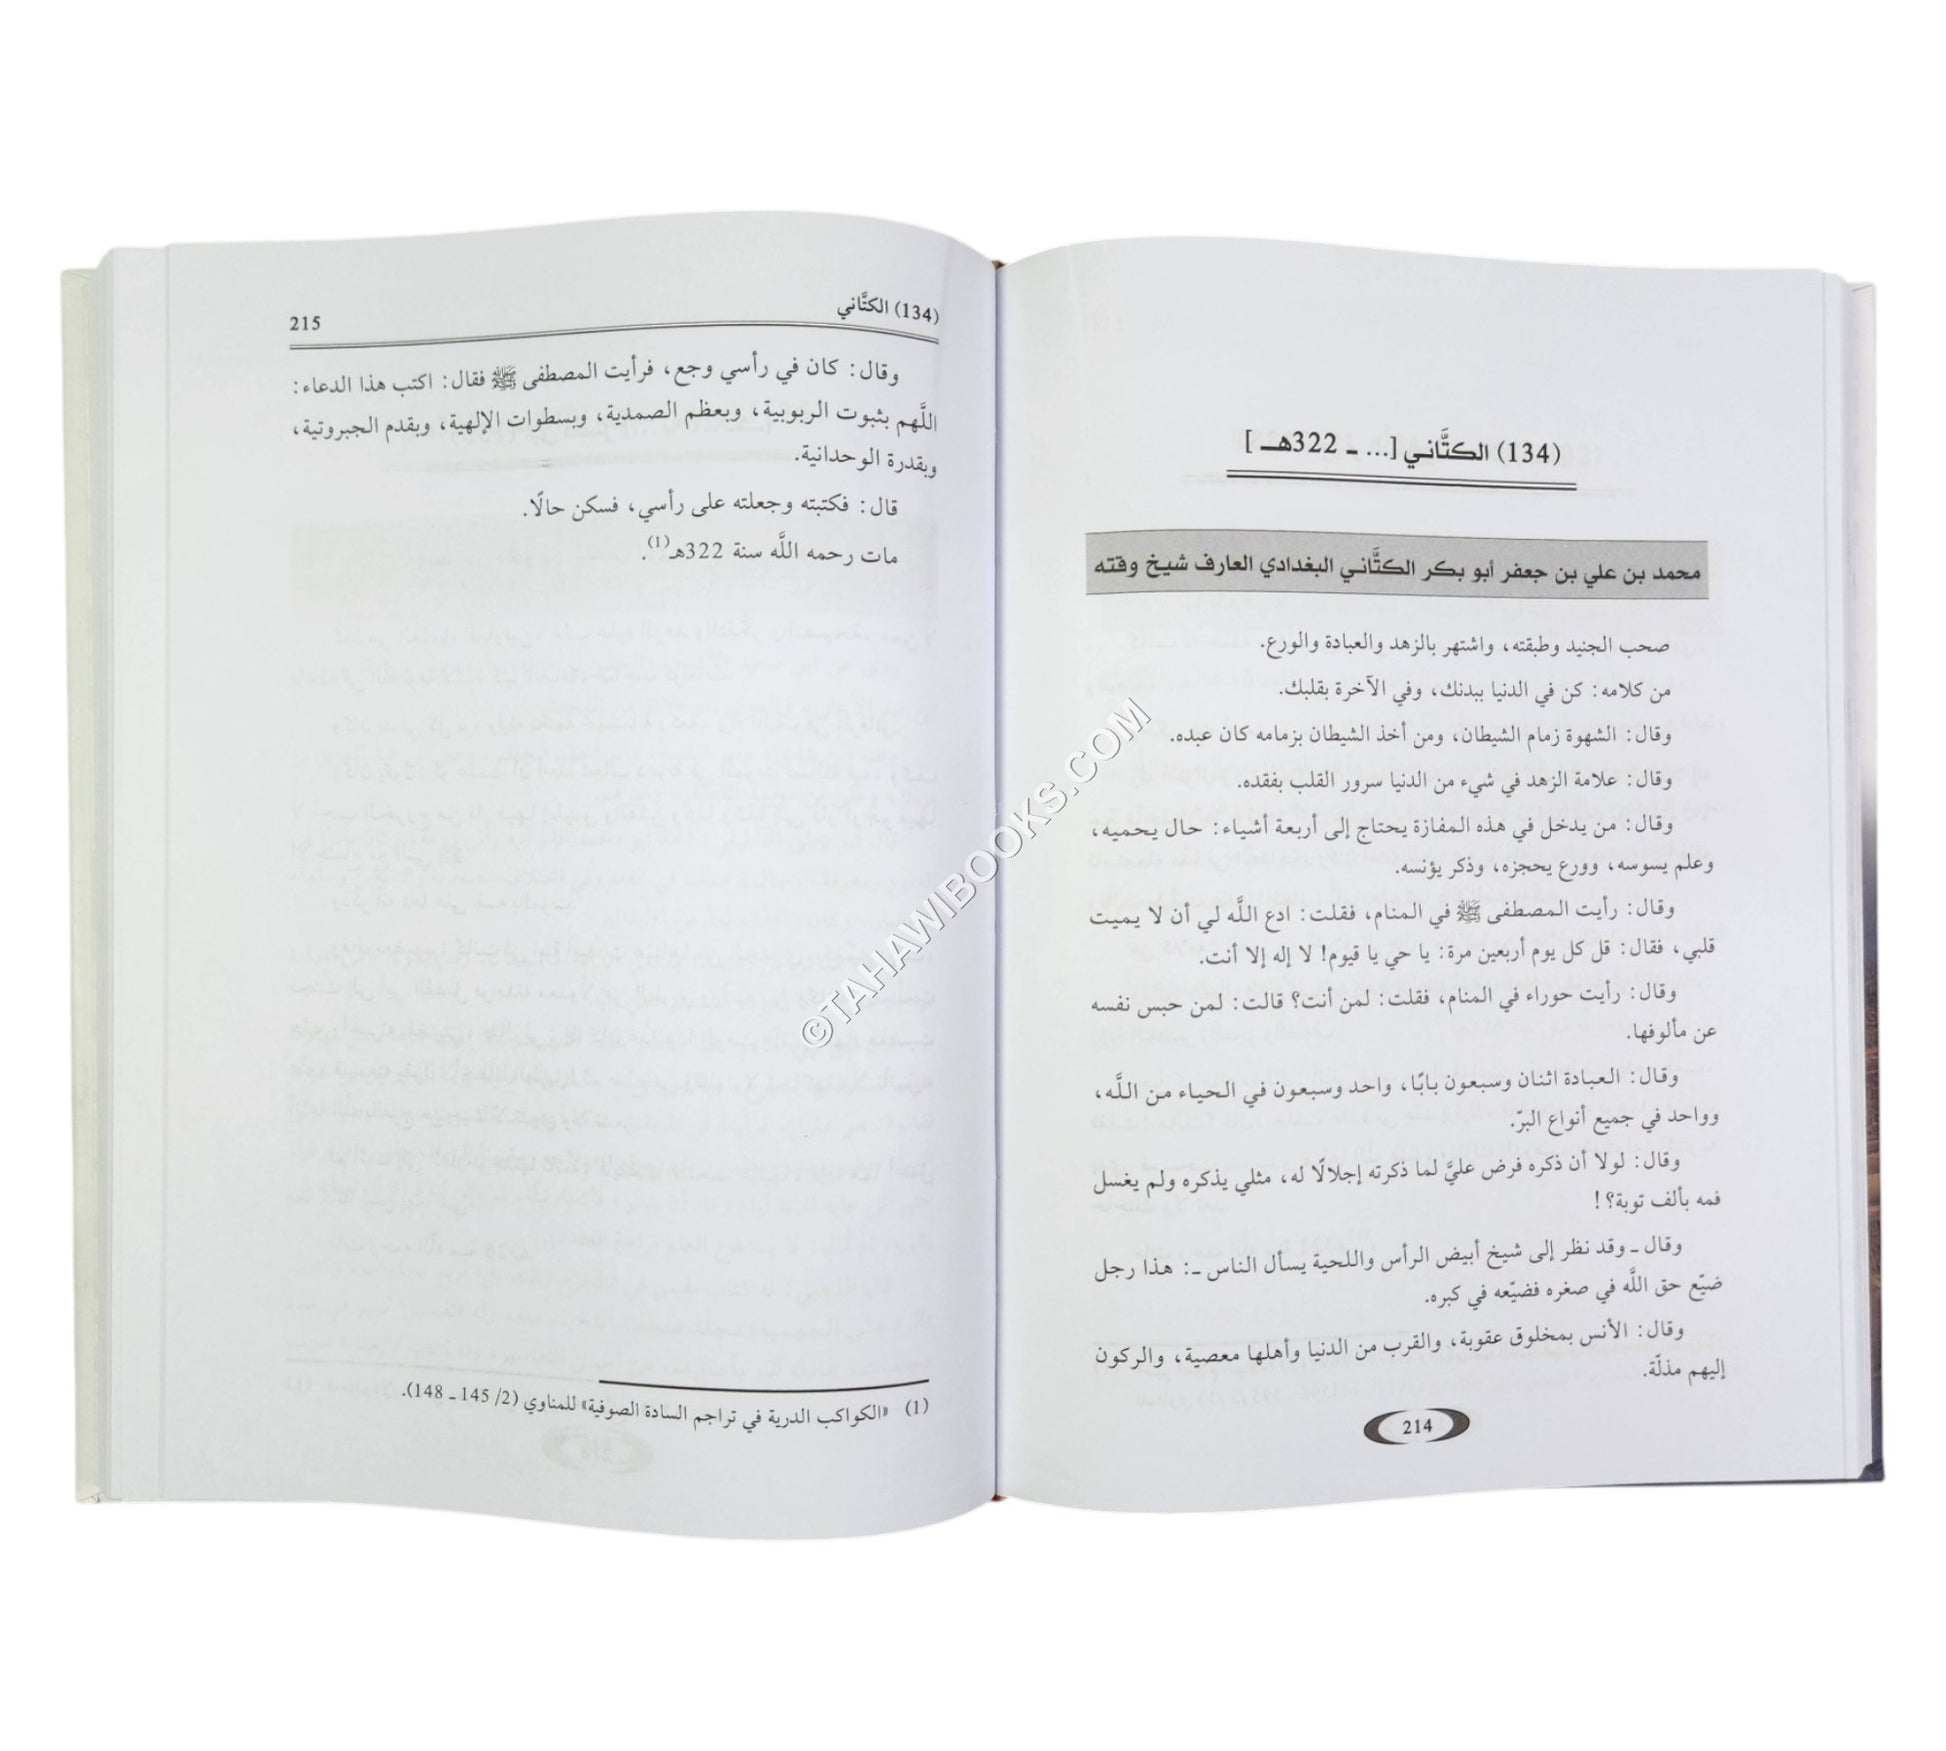 (134) الكتَّاني [... ـ 322هـ]
محمد بن علي بن جعفر أبو بكر الكتَّاني البغدادي العارف شيخ وقته
صحب الجنيد وطبقته، واشتهر بالزهد والعبادة والورع.
من كلامه: كن في الدنيا ببدنك، وفي الآخرة بقلبك.
وقال: الشهوة زمام الشيطان، ومن أخذ الشيطان بزمامه كان عبده.
وقال: علامة الزهد في شيء من الدنيا سرور القلب بفقده.
وقال: من يدخل في هذه المفازة يحتاج إلى أربعة أشياء: حال يحميه،
وعلم يسوسه، وورع يحجزه، وذكر يؤنسه.
وقال: رأيت المصطفى ﷺ في المنام، فقلت: ادع اللَّه لي أن لا يميت
قلبي، فقال: قل كل يوم أربعين مرة: يا حي يا قيوم! لا إله إلا أنت.
وقال: رأيت حوراء في المنام، فقلت: لمن أنت؟ قالت: لمن حبس نفسه
عن مألوفها.
وقال: العبادة اثنان وسبعون بابًا، واحد وسبعون في الحياء من اللَّه،
وواحد في جميع أنواع البرّ.
وقال: لولا أن ذكره فرض عليَّ لما ذكرته إجلالًا له، مثلي يذكره ولم يغسل
فمه بألف توبة؟!
وقال ـ وقد نظر إلى شيخ أبيض الرأس واللحية يسأل الناس ـ: هذا رجل
ضيّع حق اللَّه في صغره فضيّعه في كبره.
وقال: الأنس بمخلوق عقوبة، والقرب من الدنيا وأهلها معصية، والركون
إليهم مذلّة.
214
(134) الكتَّاني
215
وقال: كان في رأسي وجع، فرأيت المصطفى ﷺ فقال: اكتب هذا الدعاء:
اللَّهم بثبوت الربوبية، وبعظم الصمدية، وبسطوات الإلهية، وبقدم الجبروتية،
وبقدرة الوحدانية.
قال: فكتبته وجعلته على رأسي، فسكن حالًا.
مات رحمه اللَّه سنة 322هـ(1).
(1) «الكواكب الدرية في تراجم السادة الصوفية» للمناوي (2/ 145 ـ 148).
©TAHAWIBOOKS.COM